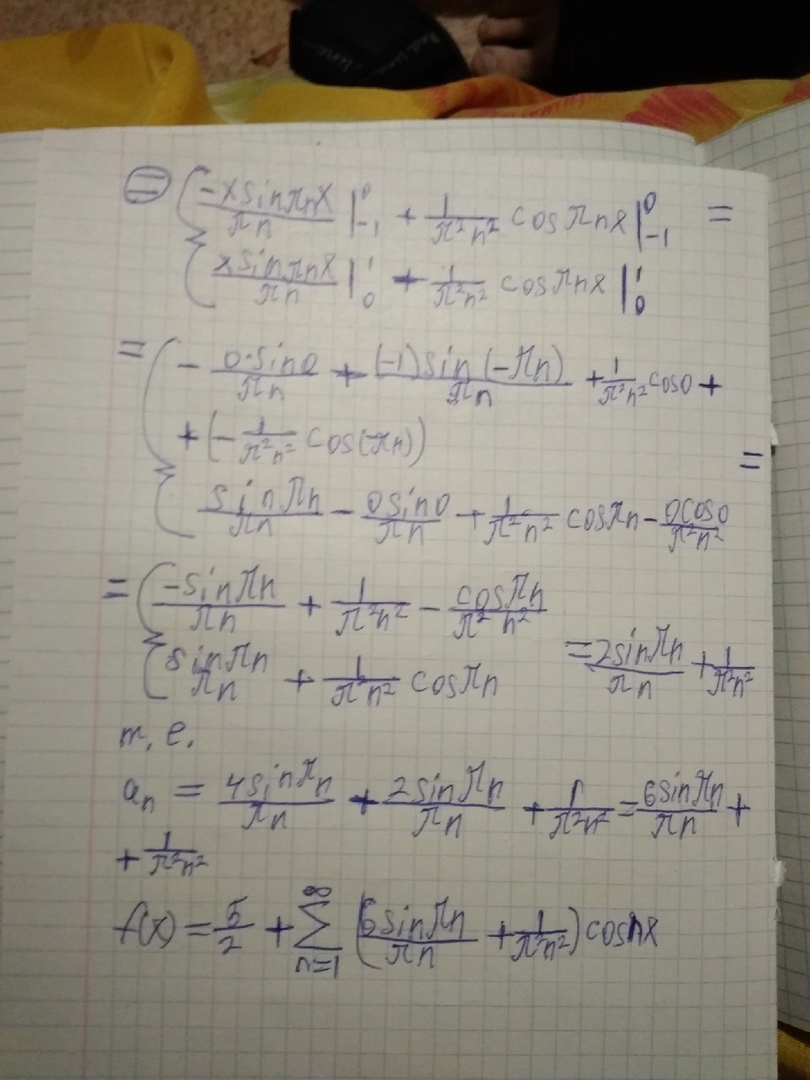 ⊜ { (-x sin πnx)/(πn) |₋₁⁰ + 1/(π²n²) cos πnx |₋₁⁰ =
(x sin πnx)/(πn) |₀¹ + 1/(π²n²) cos πnx |₀¹
= { - (0·sin0)/(πn) + ((-1) sin(-πn))/(πn) + 1/(π²n²) cos0 +
+ (- 1/(π²n²) cos(πn)) =
(sin πn)/(πn) - (0 sin0)/(πn) + 1/(π²n²) cos πn - (0 cos0)/(π²n²)
= { (-sin πn)/(πn) + 1/(π²n²) - (cos πn)/(π²n²)
(sin πn)/(πn) + 1/(π²n²) cos πn = (2 sin πn)/(πn) + 1/(π²n²)
т, е.
aₙ = (4 sin πn)/(πn) + (2 sin πn)/(πn) + 1/(π²n²) = (6 sin πn)/(πn) +
+ 1/(π²n²)
f(x) = 5/2 + ∑ₙ₌₁^∞ ((6 sin πn)/(πn) + 1/(π²n²)) cos nx